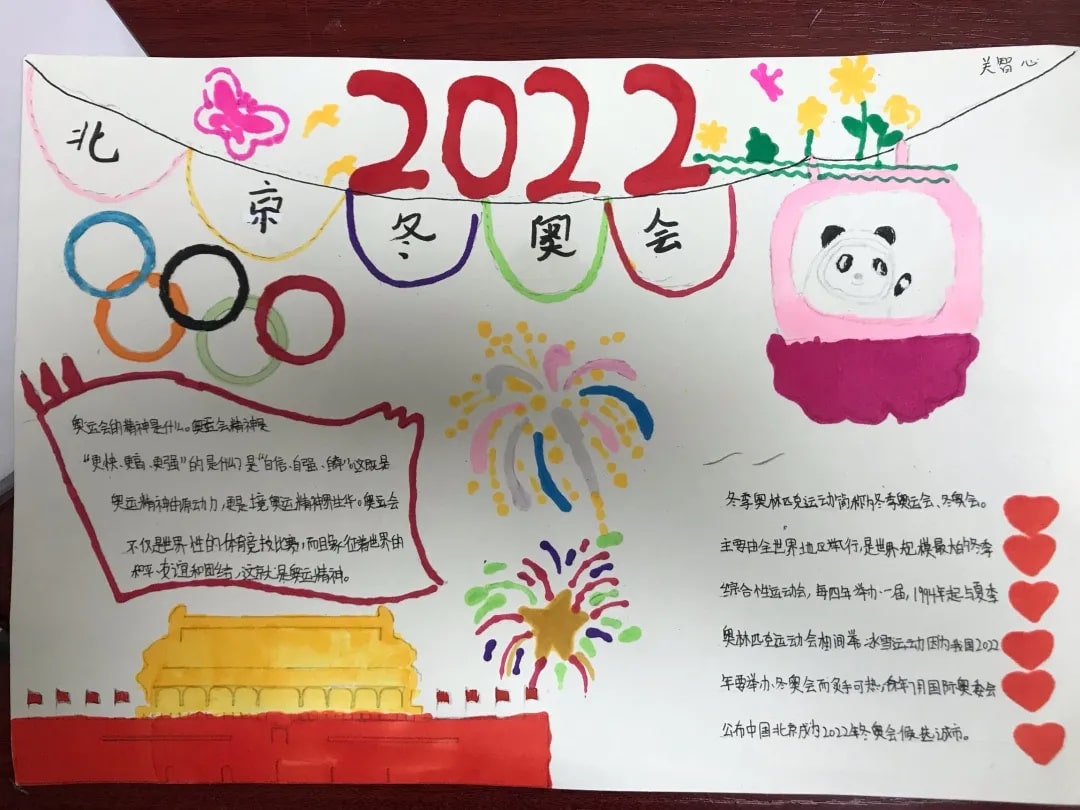 关智心
2022
北京冬奥会
奥运会的精神是什么。奥运会精神是
“更快、更高、更强”的是什么?是“自信、自强、自尊”这既是
奥运精神的原动力,更是 境奥运精神界升华。奥运会
不仅是世界性的体育竞技比赛,而且象征着世界的
和平、友谊和团结,这就是奥运精神。
冬季奥林匹克运动简称为冬季奥运会、冬奥会。
主要由全世界地区举行,是世界规模最大的冬季
综合性运动会,每四年举办一届,1994年起与夏季
奥林匹克运动会相间举 冰雪运动因为我国2022
年要举办冬奥会而炙手可热, 年7月国际奥委会
公布中国北京成为2022年冬奥会候选城市。